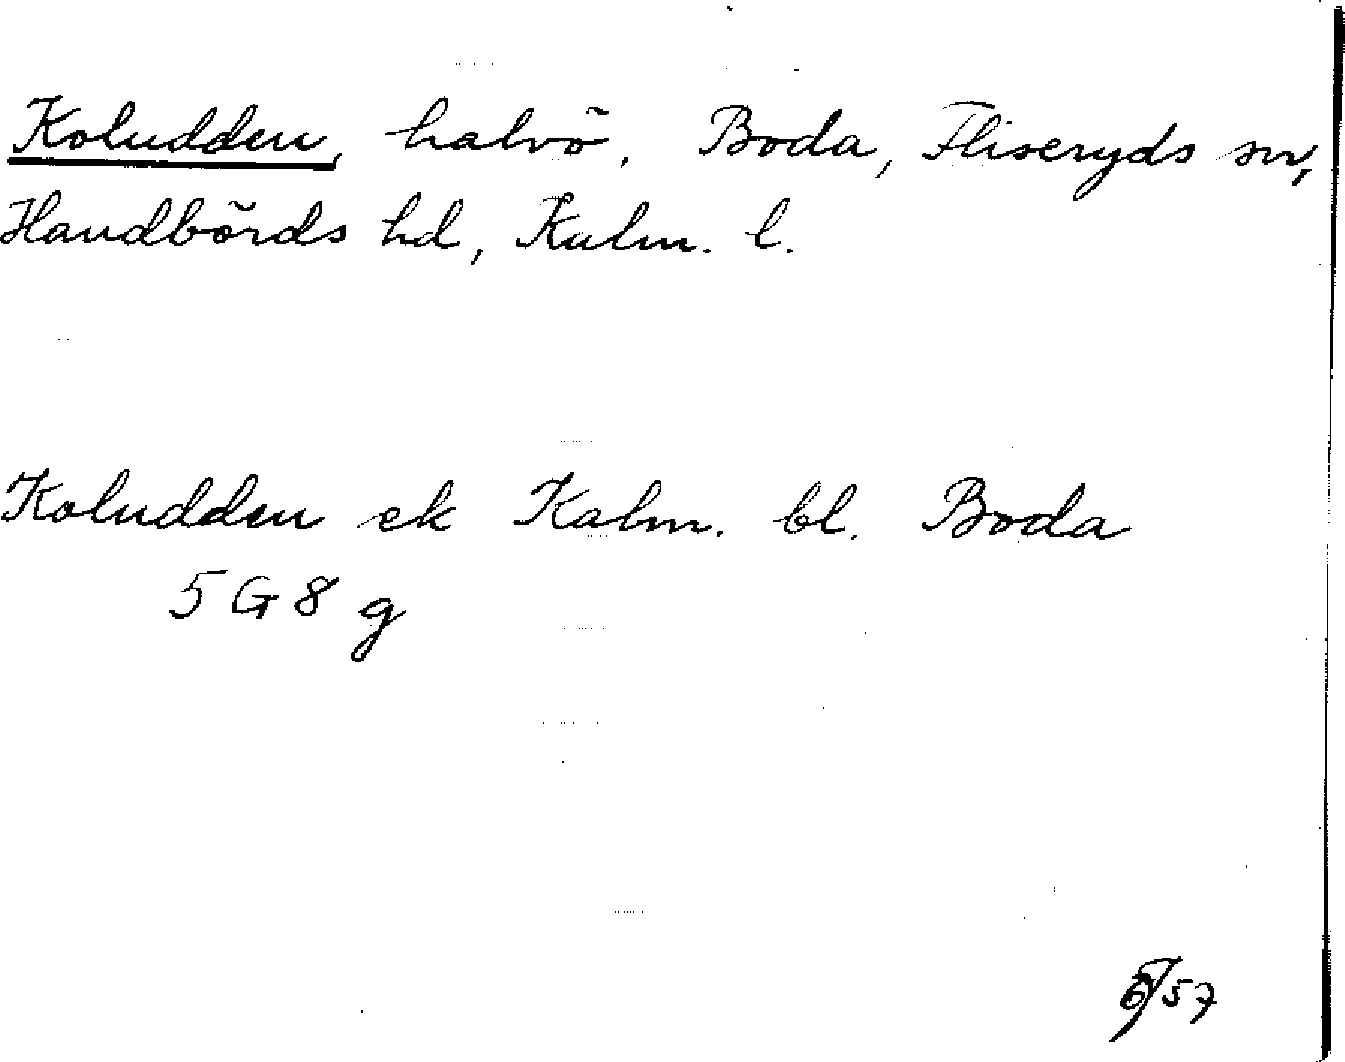 Koludden, halvö, Boda, Fliseryds sn,
Handbörds hd, Kalm. l.
Koludden ek Kalm. bl. Boda
5 G 8 g